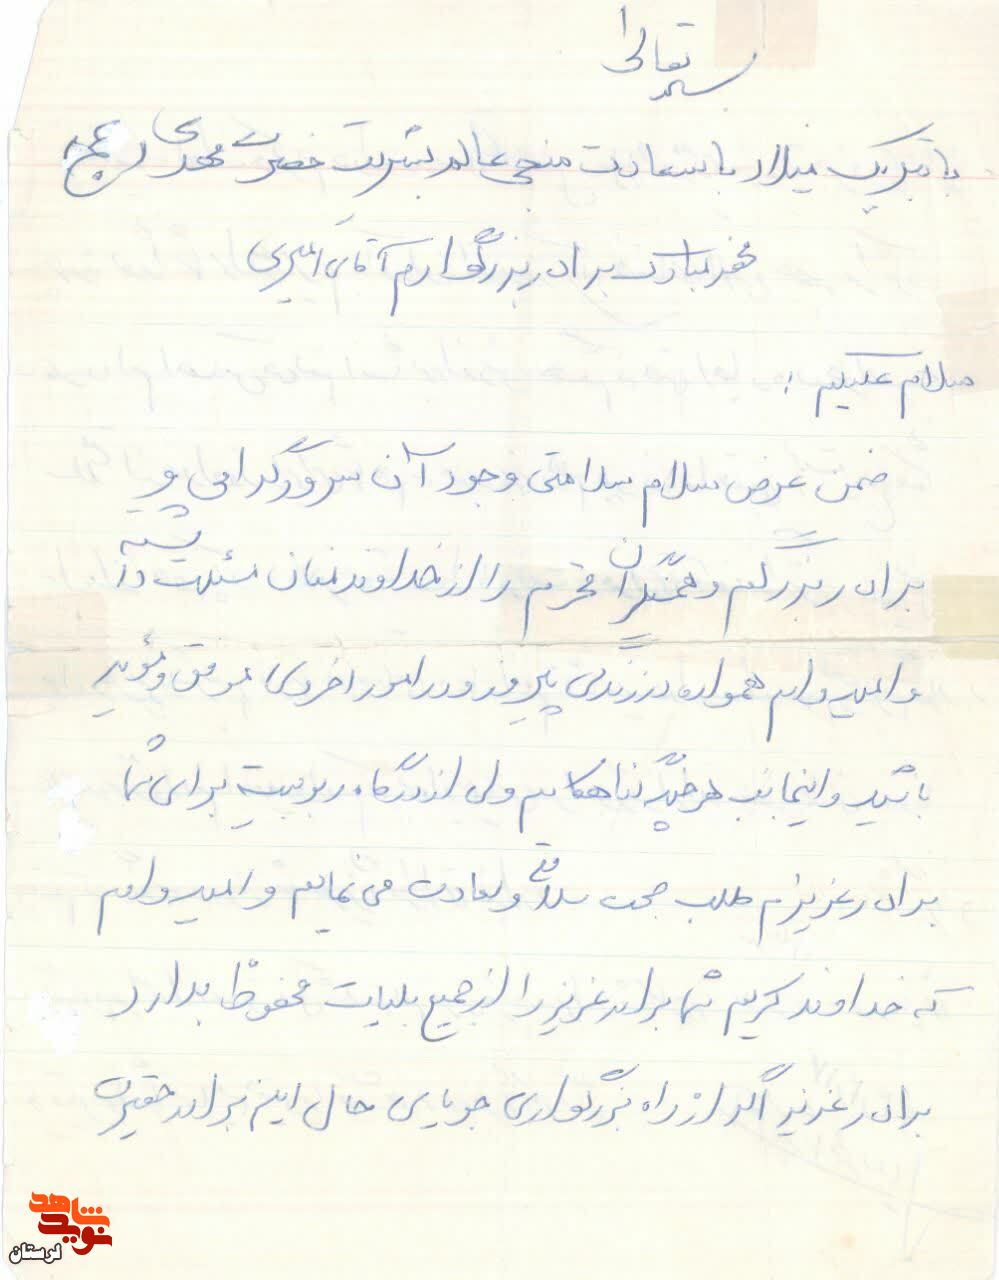 بسمه تعالی
با تبریک میلاد با سعادت منجی عالم بشریت حضرت مهدی (عج)
محضر مبارک برادر بزرگوارم آقای امیری
سلام علیکم :
ضمن عرض سلام سلامتی وجود آن سرور گرامی و
برادر بزرگم و همسنگران محترم را از خداوند منان مسئلت داشته
و امیدوارم همواره در زندگی پیروز و در امور اخروی موفق و مؤید
باشید و اینجانب هر چند گناهکارم ولی از درگاه ربوبیت برای شما
برادر عزیزم طلب صحت سلامتی و سعادت می نمایم و امیدوارم
که خداوند کریم شما برادر عزیز را از جمیع بلیات محفوظ بدارد
برادر عزیز اگر از راه بزرگواری جویای حال این برادر حقیرت
شاهد
نوید
لرستان